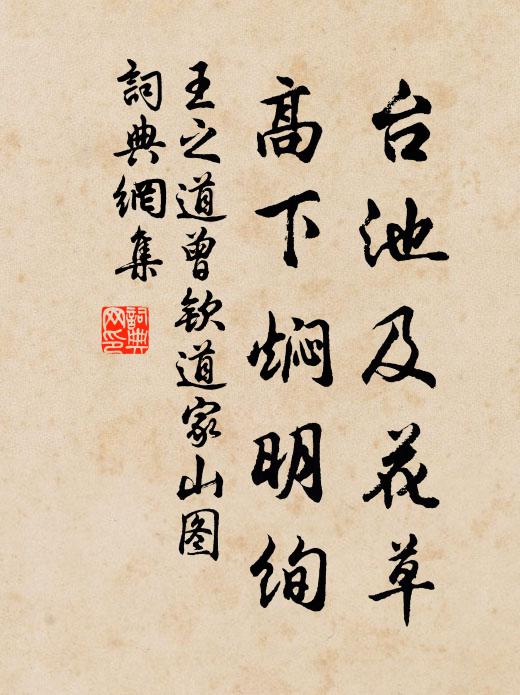 台池及花草
高下焖明绚
王之道曾钦道家山图
詞典網集
詞典网印